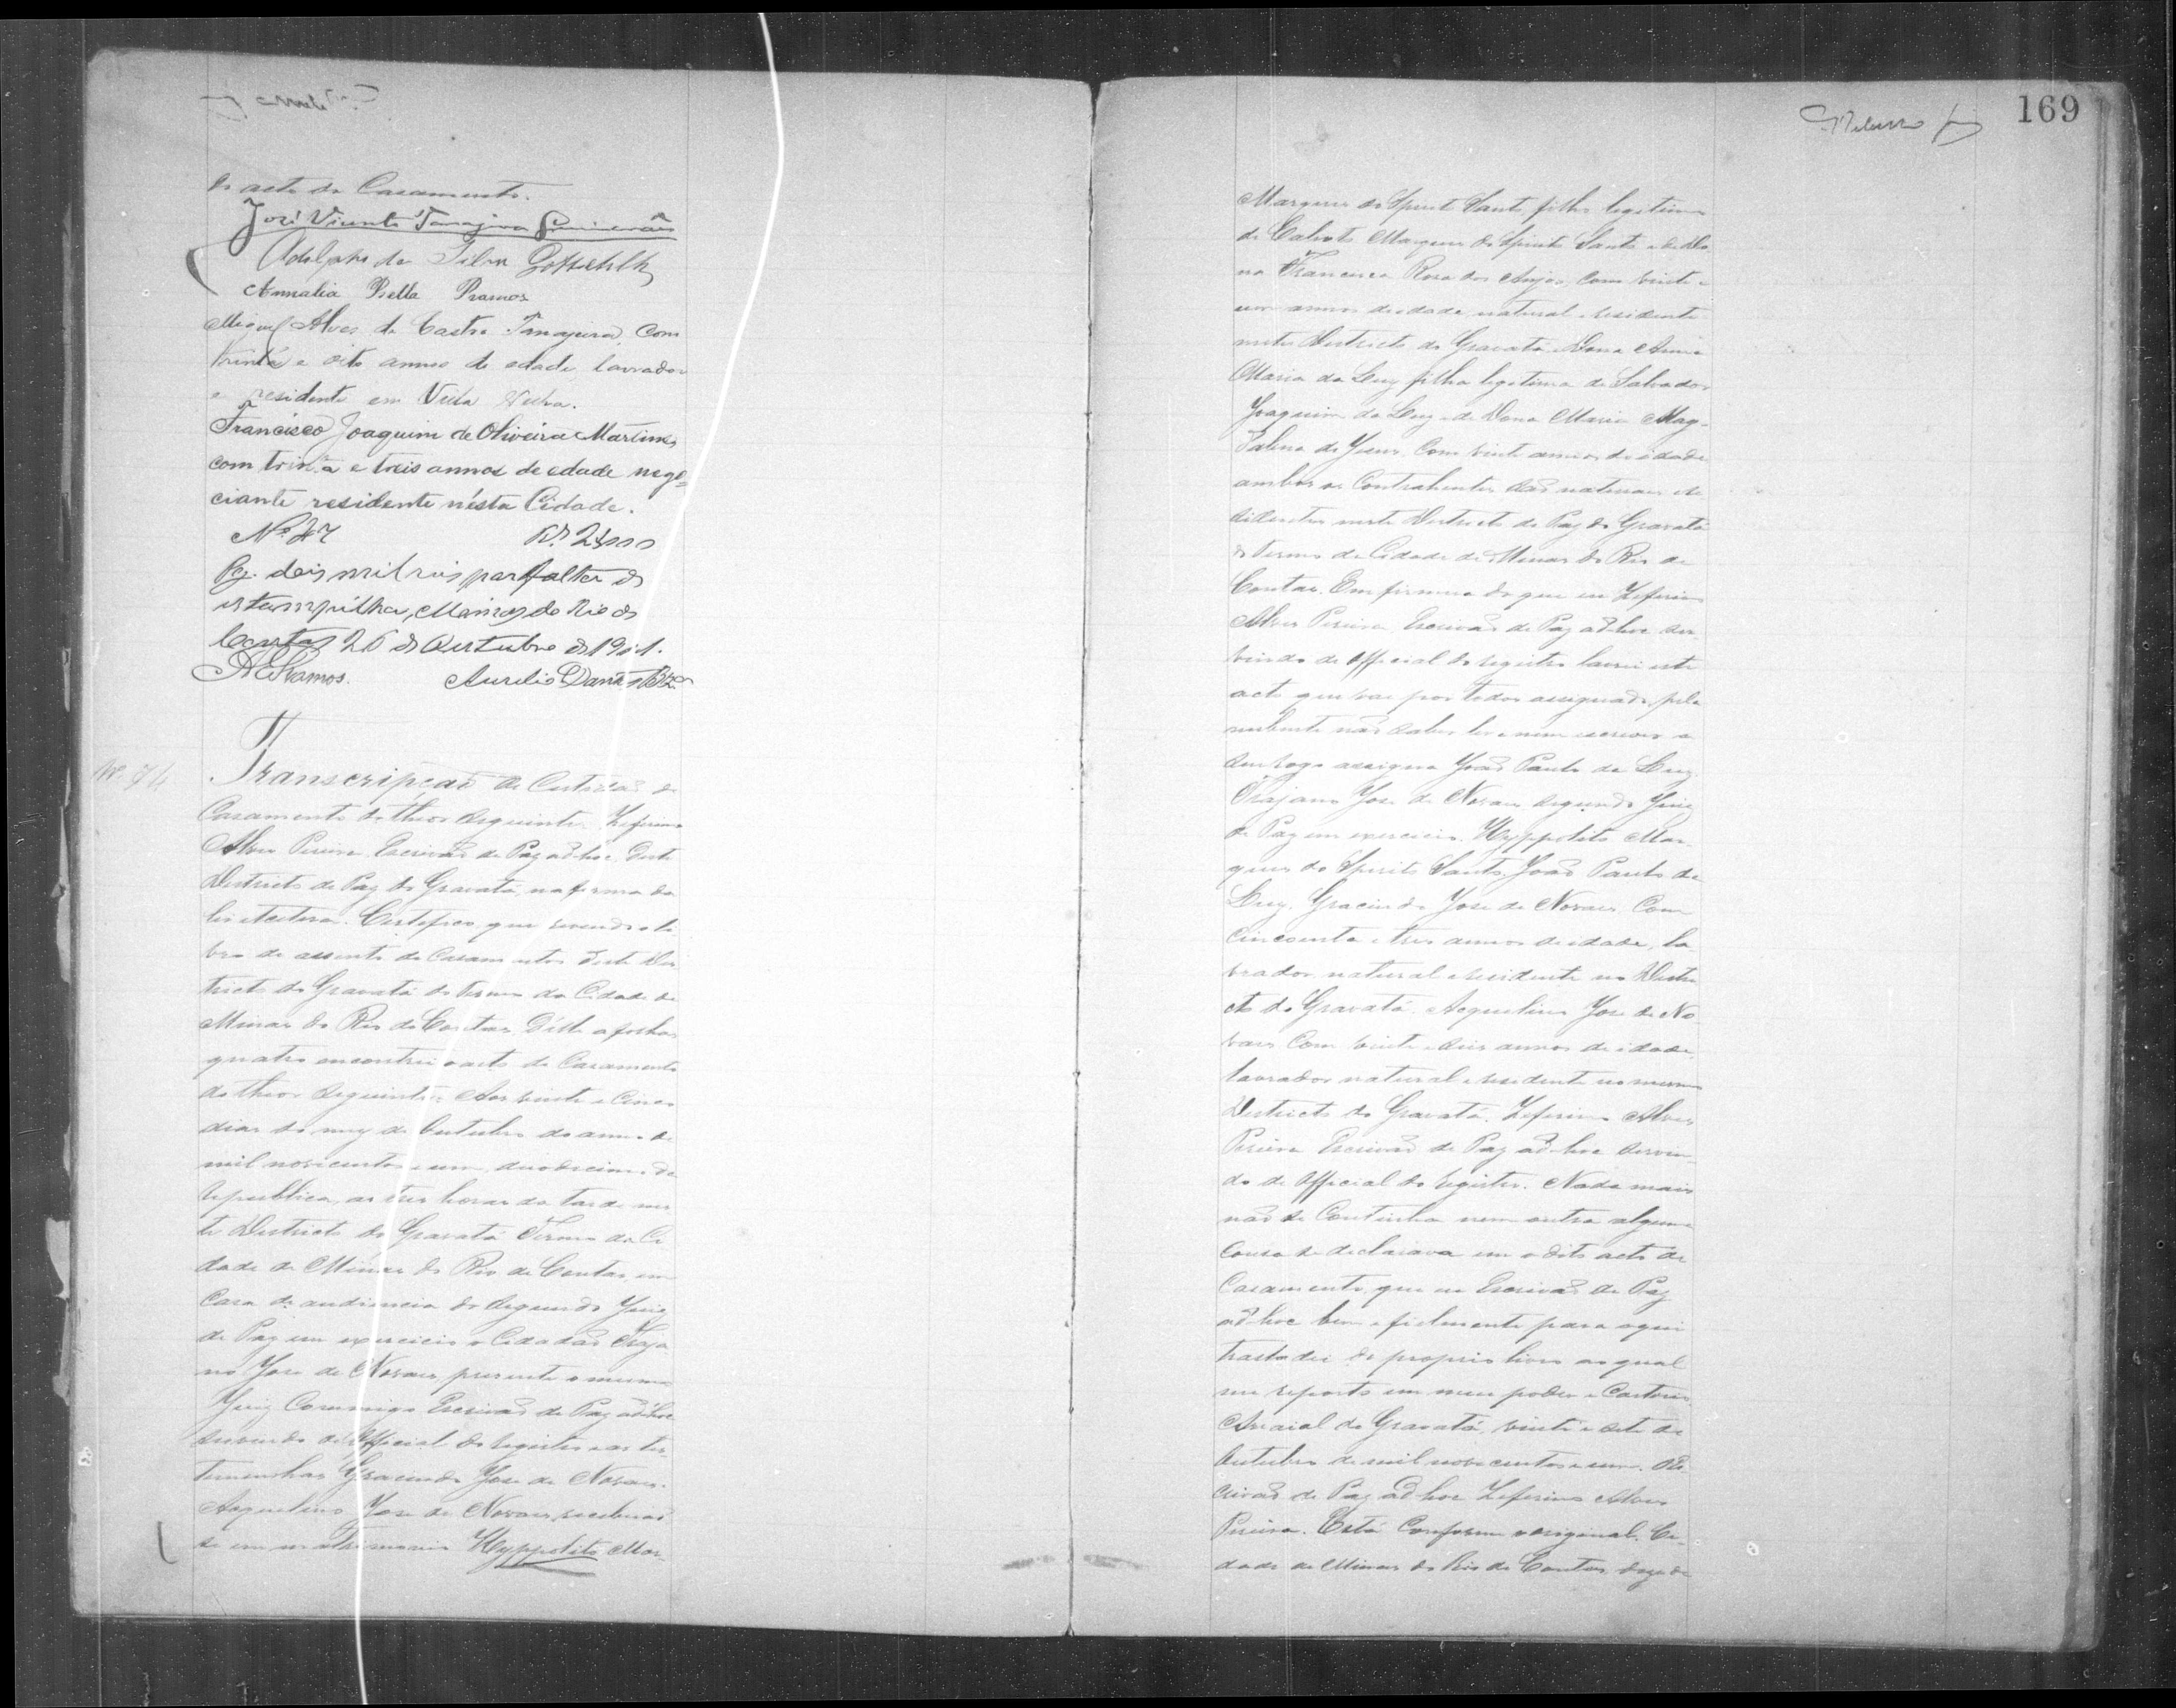 o acto do Casamento.
José Vicente Tanajura Guimarães
Adolpho da Silva Gottschalk
Annalia Bella Ramos
Miguel Alves de Castro Tanajura, com
trinta e oito annos de edade, lavrador
e residente em Villa Velha.
Francisco Joaquim de Oliveira Martins
com trinta e treis annos de edade nego=
ciante residente nésta Cidade.
Nº 27 Rs 2$000
Pg. dois mil reis por falta de
estampilha, Minas do Rio de
Contas 26 de Outubro de 1901.
Ramos. Aurelio Dantas
Nº 74
Transcripção da Certidão de
Casamento do theor seguinte: Zeferino
Alves Pereira, Escrivão de Paz ad-hoc, deste
Districto de Paz do Gravatá, na forma da
lei etcetera. Certifico que revendo o li
vro de assento de Casamentos deste Dis
tricto do Gravatá do Termo da Cidade de
Minas do Rio de Contas, delle a folhas
quatro encontrei o acto de Casamento
do theor seguinte: Aos vinte e cinco
dias do mez de Outubro do anno de
mil novecentos e um, duodecimo da
Republica, as tres horas da tarde nes
te Districto do Gravatá Termo da Ci
dade de Minas do Rio de Contas, em
Casa de audiencia do segundo Juiz
de Paz em exercicio o Cidadão Traja
no Jose de Novaes, presente o mesmo
Juiz Commigo Escrivão de Paz ad-hoc
servindo de Official do registro e as tes
temunhas Gracindo Jose de Novaes.
Aequelino Jose de Novaes, receberão
se em mathrimonio Hyppolito Mar-
169
Marques do Spirito Santo, filho legitimo
de Calisto Marques do Spirito Santo e de Do
na Francisca Rosa dos Anjos, com vinte e
um annos de edade, natural e residente
neste Districto do Gravatá e Dona Anna
Maria da Luz filha legitima de Salvador
Joaquim da Luz e de Dona Maria Mag-
dalena de Jesus, com vinte annos de idade
ambos os Contrahentes são naturaes e re
sidentes neste Districto de Paz do Gravatá
do Termo da Cidade de Minas do Rio de
Contas. Em firmeza do que eu Zeferino
Alves Pereira, Escrivão de Paz ad-hoc ser
vindo de Official do registro lavrei este
acto que vae por todos assignado, pela
nubente não saber ler e nem escrever a
seu rogo assigna João Paulo da Luz.
Trajano Jose de Novaes segundo Juiz
de Paz em exercicio. Hyppolito Mar
ques do Spirito Santo. João Paulo da
Luz. Gracindo Jose de Novaes. Com
cincoenta e tres annos de idade, la
vrador, natural e residente no Distri
cto do Gravatá. Aequelino Jose de No
vaes Com vinte e dois annos de idade,
lavrador natural e residente no mesmo
Districto do Gravatá. Zeferino Alves
Pereira Escrivão de Paz ad-hoc servin-
do de Official do registro. Nada mais
não se Continha nem outra alguma
cousa se declarava em o dito acto de
Casamento, que eu Escrivão de Paz
ad-hoc bem e fielmente para aqui
trasladei do proprio livro ao qual
me reporto em meu poder e Cartorio
Arraial do Gravatá, vinte e sete de
Outubro de mil novecentos e um. O Es
crivão de Paz ad-hoc Zeferino Alves
Pereira. Está Conforme o original. Ci-
dade de Minas do Rio de Contas, doze de